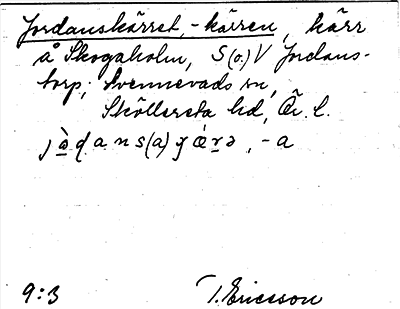 Jordanskärret, -kärren, kärr
å Skogaholm, S(o.)V Jordans-
torp; Svennevads sn,
Sköllersta hd, Ör. l.
-a
9:3 T. Ericsson